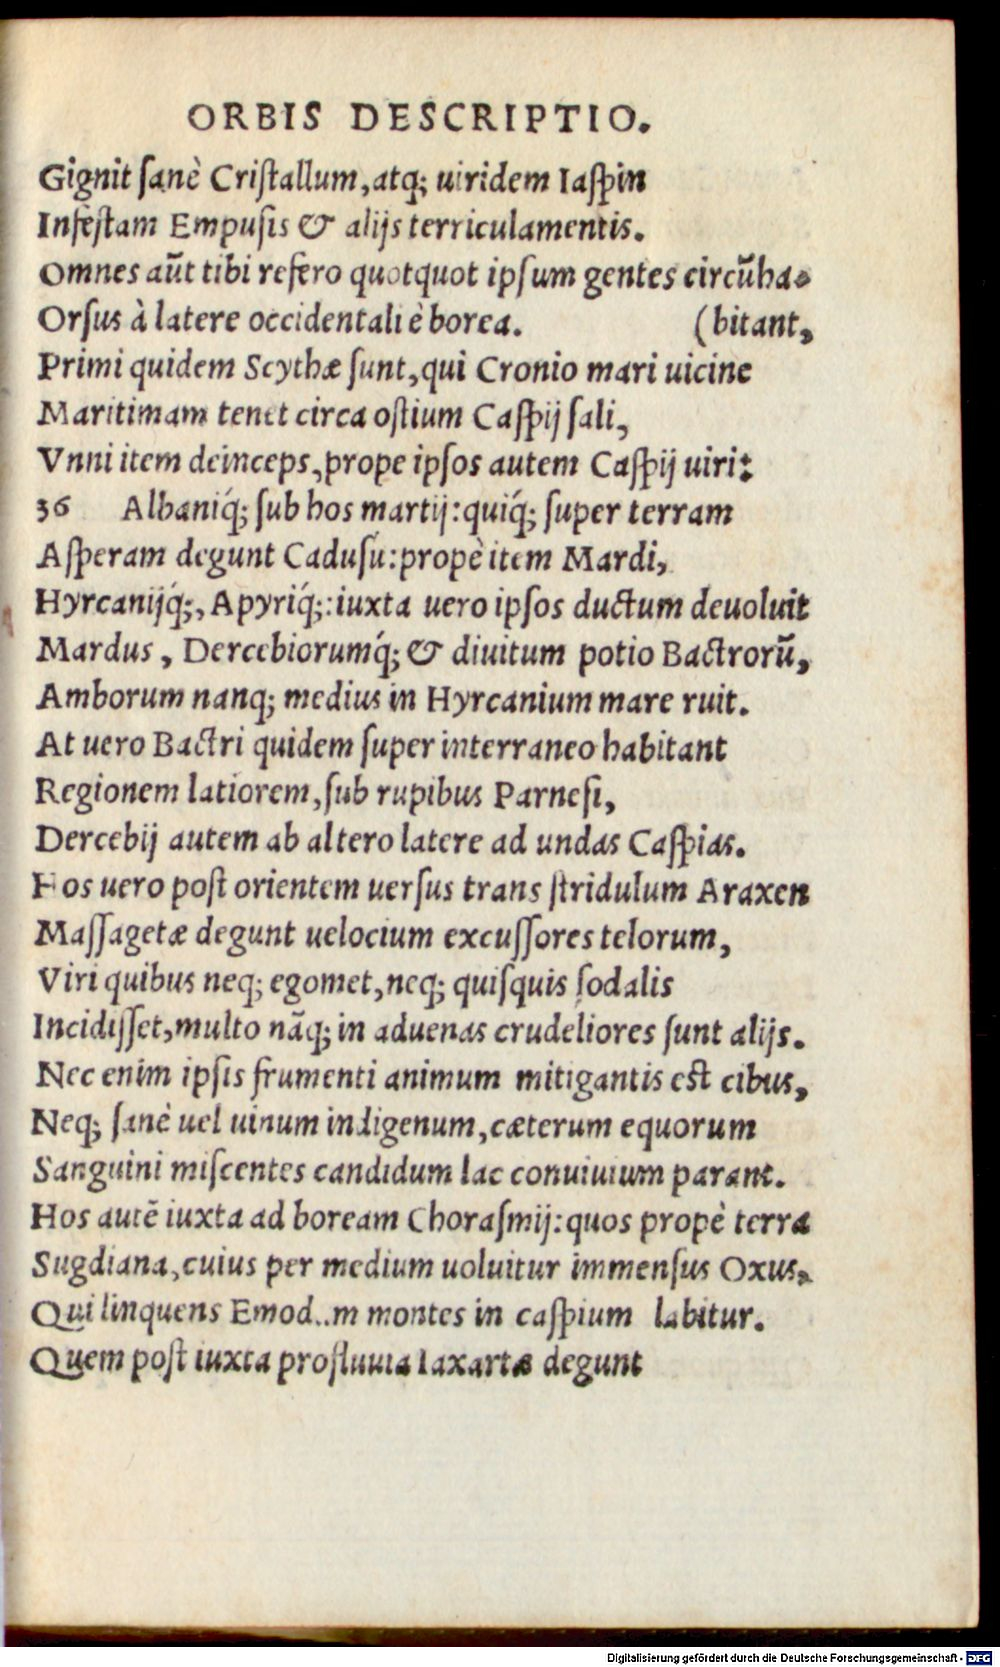 ORBIS DESCRIPTIO.
Gignit sanè Cristallum, atq; uiridem Iaspin
Infestam Empusis & alijs terriculamentis.
Omnes aūt tibi refero quotquot ipsum gentes circūha-
Orsus à latere occidentali è borea. (bitant,
Primi quidem Scythæ sunt, qui Cronio mari uicine
Maritimam tenet circa ostium Caspij sali,
Vnni item deinceps, prope ipsos autem Caspij uiri:
36 Albaniq́; sub hos martij: quiq́; super terram
Asperam degunt Cadusii: propè item Mardi,
Hyrcanijq́;, Apyriq́;: iuxta uero ipsos ductum deuoluit
Mardus, Dercebiorumq́; & diuitum potio Bactrorū,
Amborum nanq; medius in Hyrcanium mare ruit.
At uero Bactri quidem super interraneo habitant
Regionem latiorem, sub rupibus Parnesi,
Dercebij autem ab altero latere ad undas Caspias.
Hos uero post orientem uersus trans stridulum Araxen
Massagetæ degunt uelocium excussores telorum,
Viri quibus neq; egomet, neq; quisquis sodalis
Incidisset, multo nāq; in aduenas crudeliores sunt alijs.
Nec enim ipsis frumenti animum mitigantis est cibus,
Neq; sanè uel uinum indigenum, cæterum equorum
Sanguini miscentes candidum lac conuiuium parant.
Hos autē iuxta ad boream Chorasmij: quos propè terra
Sugdiana, cuius per medium uoluitur immensus Oxus,
Qui linquens montes in caspium labitur.
Quem post iuxta profluuia Iaxartæ degunt
Digitalisierung gefördert durch die Deutsche Forschungsgemeinschaft - DFG